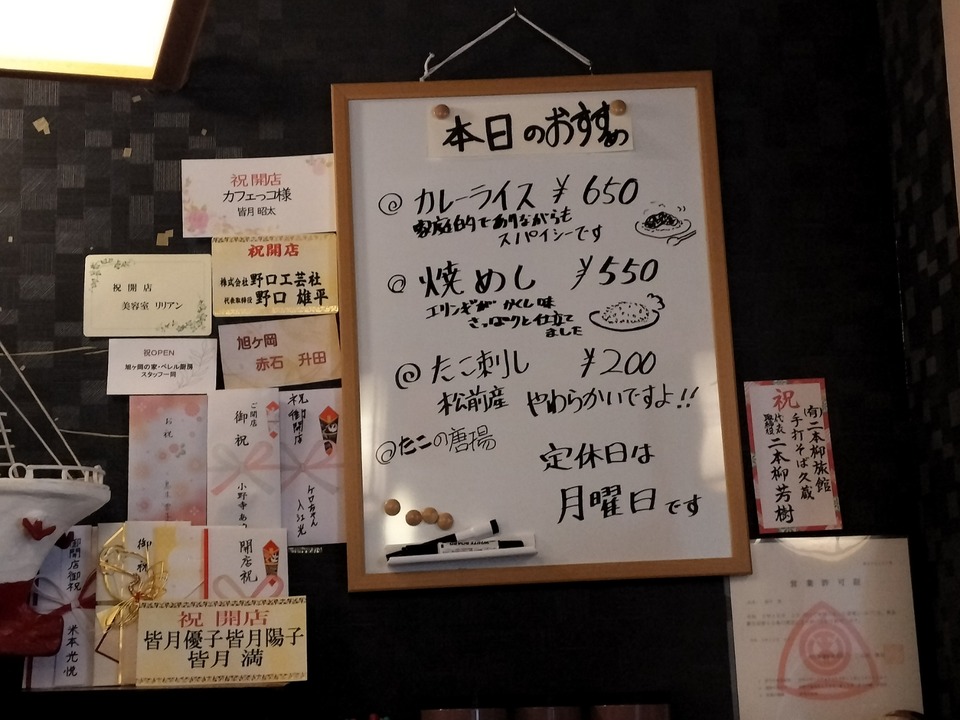 本日のおすすめ
@ カレーライス ¥650
家庭的でありながらも
スパイシーです
@ 焼めし ¥550
エリンギが かくし味
さっぱりと仕立て
ました
@ たこ刺し ¥200
松前産 やわらかいですよ!!
@たこの唐揚
定休日は
月曜日です
祝開店
カフェっコ様
皆月 昭太
祝開店
株式会社 野口工芸社
代表取締役 野口 雄平
祝 開 店
美容室 リリアン
祝OPEN
旭ヶ岡の家・ベレル厨房
スタッフ一同
旭ヶ岡
赤石 升田
お祝
ご開店
御祝
小野寺
祝 御開店
ケロちゃん
入江光
御開店御祝
米本光悦
御祝
開店祝
祝 開店
皆月優子皆月陽子
皆月 満
祝
(有)二本柳旅館
手打そば久蔵
代表取締役 二本柳芳樹
営業許可証